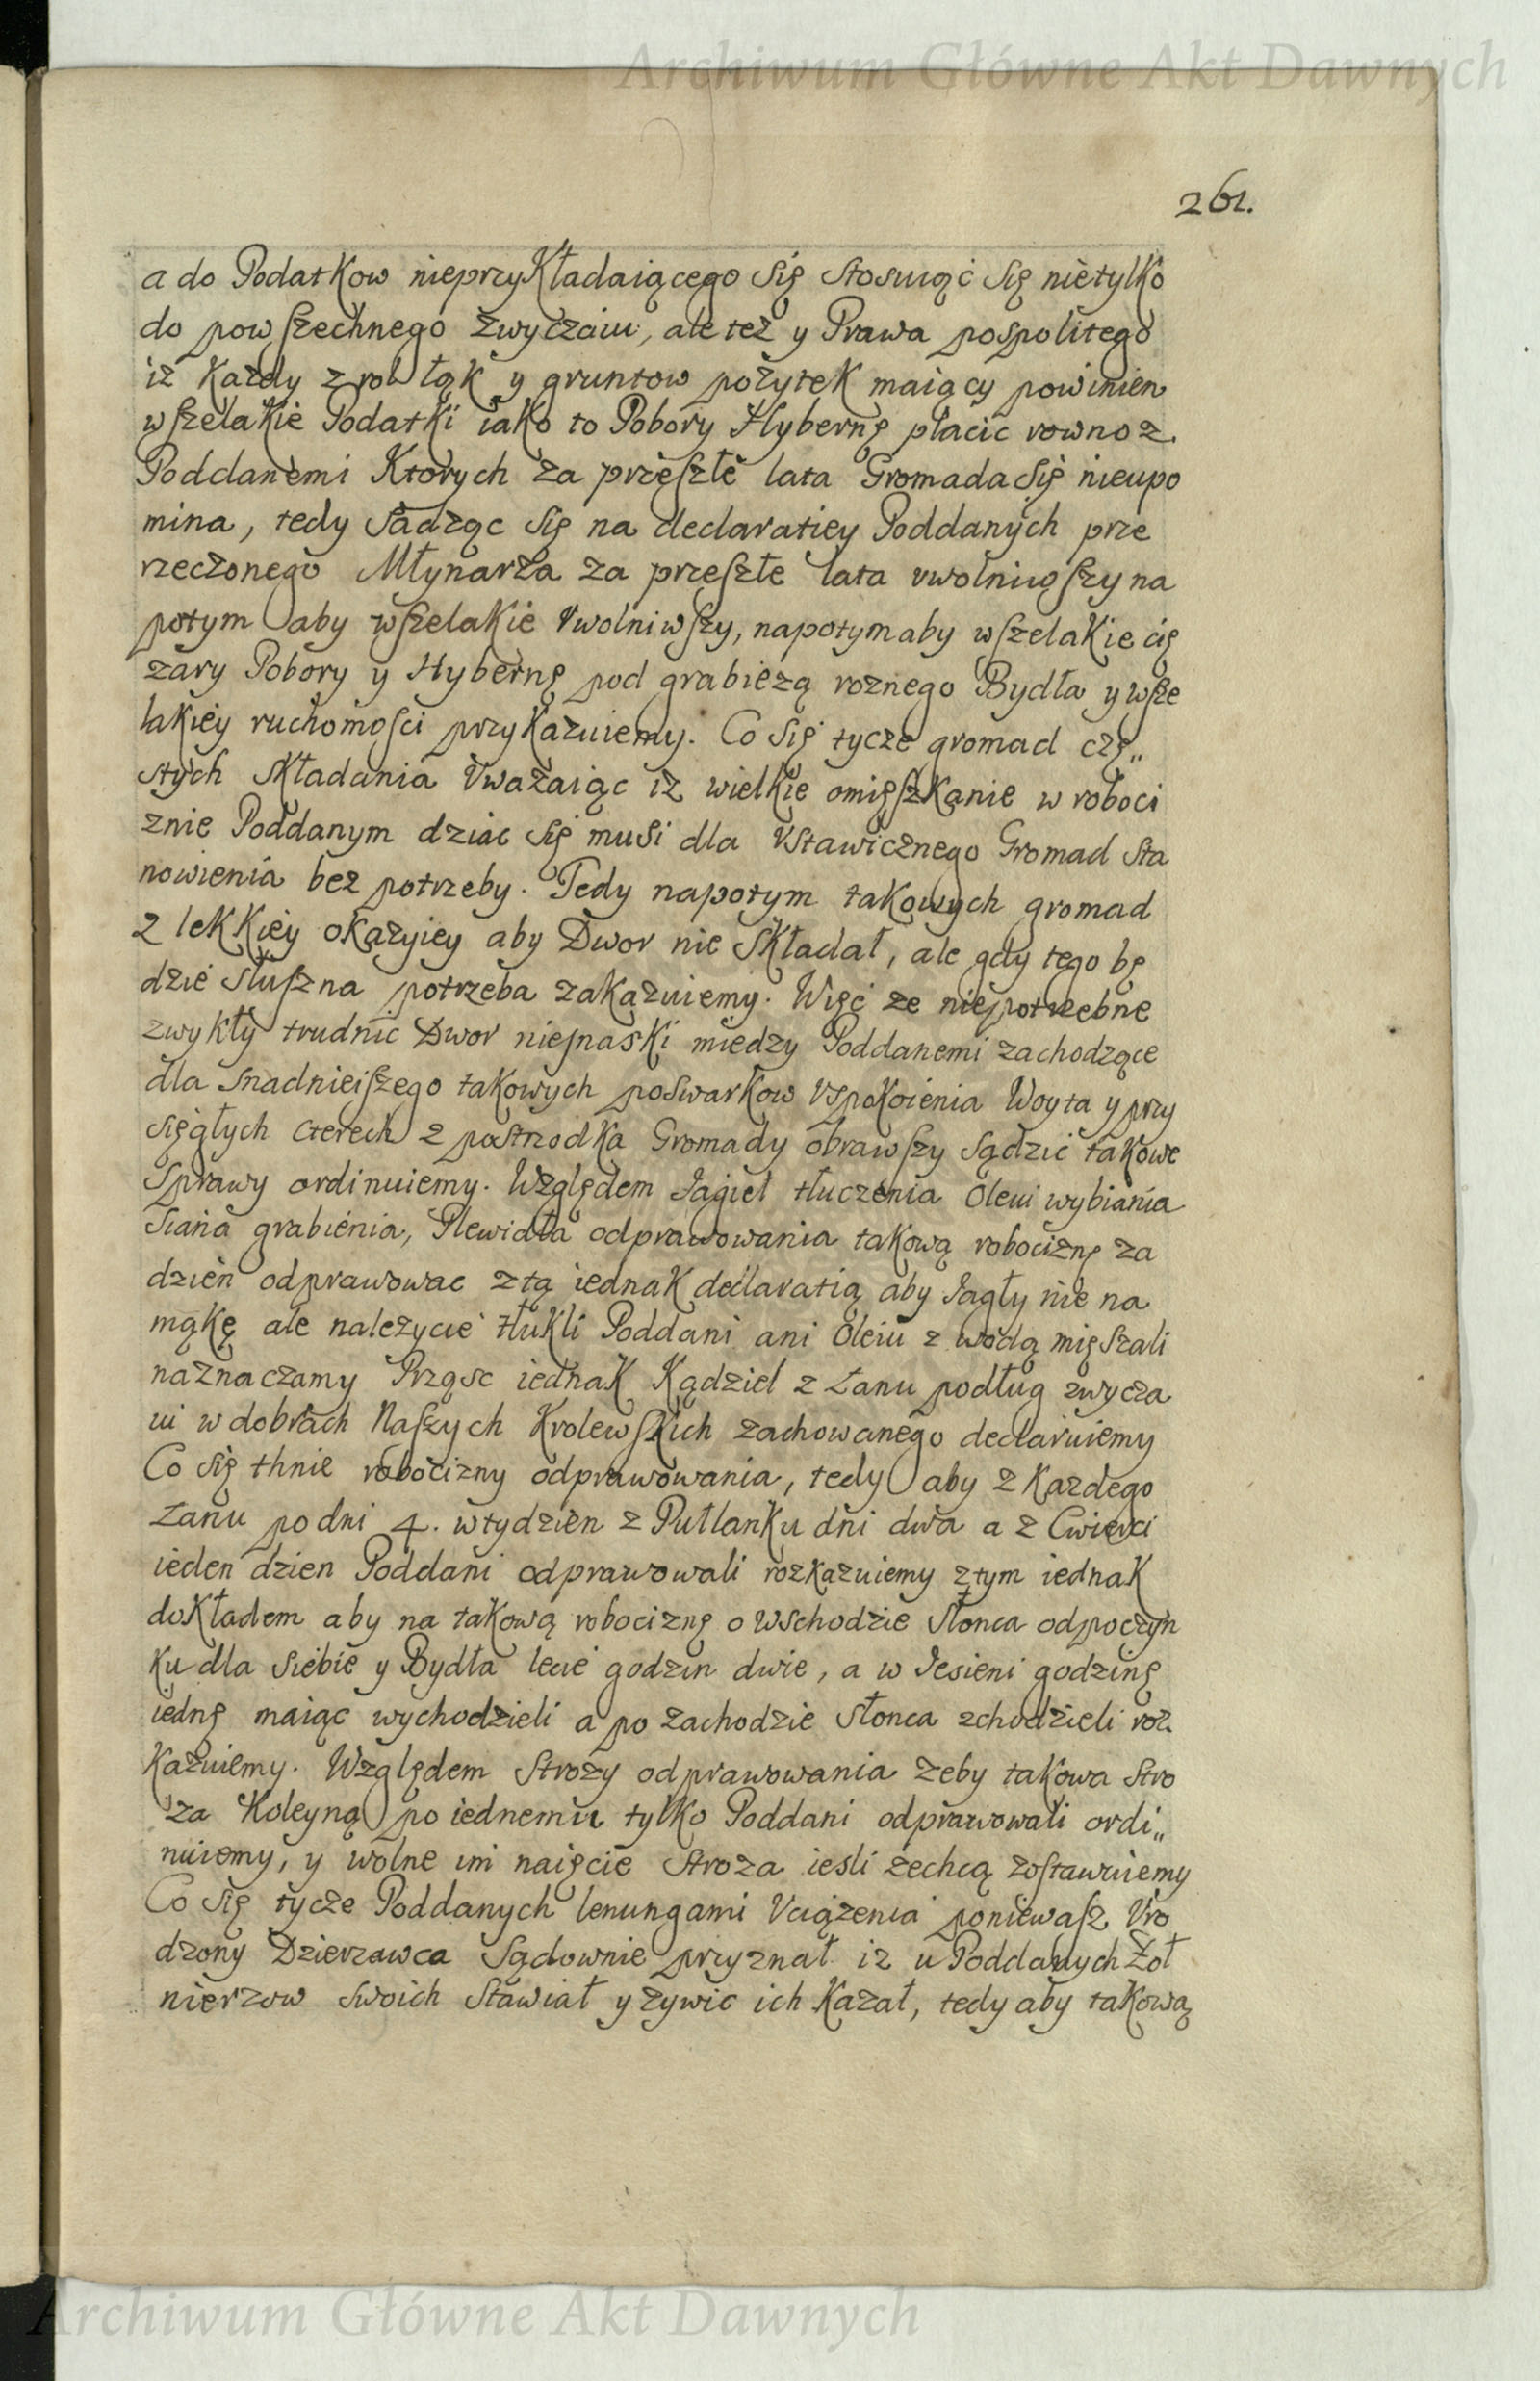 Archiwum Główne Akt Dawnych
261.
a do Podatkow nieprzykładaiącego się stosuiąc się nietylko
do powszechnego zwyczaiu, ale też y Prawa pospolitego
iż każdy z rol łąk y gruntow pożytek maiący powinien
wszelakie Podatki iako to Pobory Hybernę płacic rowno z.
Poddanemi Ktorych za przeszłe lata Gromada się nieupo
mina, tedy sadząc się na declaratiey Poddanych prze
rzeczonego Młynarza za przeszłe lata vwolniwszy na
potym aby wszelakie Vwolniwszy, napotym aby wszelakie cię
zary Pobory y Hybernę pod grabiezą roznego Bydła y wsze
lakiey ruchomosci przykazuiemy. Co się tycze gromad czę„
stych składania Vważaiąc iż wielkie omięszkanie w roboci
znie Poddanym dziac się musi dla Vstawicznego Gromad sta
nowienia bez potrzeby. Tedy napotym takowych gromad
z lekkiey okazyiey aby Dwor nie składał, ale gdy tego bę
dzie słuszna potrzeba zakazuiemy. Więc ze niepotrzebne
zwykły trudnic Dwor niesnaski miedzy Poddanemi zachodzące
dla snadnieiszego takowych poswarkow Vspokoienia Woyta y przy
sięgłych cterech z postrzodka Gromady obrawszy sądzic takowe
Sprawy ordinuiemy. Względem Jagieł tłuczenia Oleiu wybiania
Siana grabienia, Plewidła odprawowania takową robociznę za
dzien odprawowac z tą iednak declaratią aby Jagły nie na
mąkę ale nalezycie tłukli Poddani ani Oleiu z wodą mięszali
naznaczamy Prząsc iednak Kądziel z Łanu podług zwycza
iu w dobrach Naszych Krolewskich zachowanego declaruiemy
Co się thnie robocizny odprawowania, tedy aby z Kazdego
Łanu po dni 4. w tydzien z Pułlanku dni dwa a z Cwierci
ieden dzien Poddani odprawowali rozkazuiemy z tym iednak
dokładem aby na takową robociznę o wschodzie słonca odpoczyn
ku dla siebie y Bydła lecie godzin dwie, a w Jesieni godzinę
iednę maiąc wychodzieli a po zachodzie słonca zchodzieli roz.
kazuiemy. Względem Strozy odprawowania zeby takowa stro
za Koleyną po iednemu tylko Poddani odprawowali ordi„
nuiemy, y wolne im naięcie stroza iesli zechcą zostawuiemy
Co się tycze Poddanych lenungami Vciązenia poniewasz Vro
dzony Dzierzawca Sądownie przyznał iz u Poddanych Żoł
nierzow swoich stawiał y zywic ich Kazał, tedy aby takową
Archiwum Główne Akt Dawnych